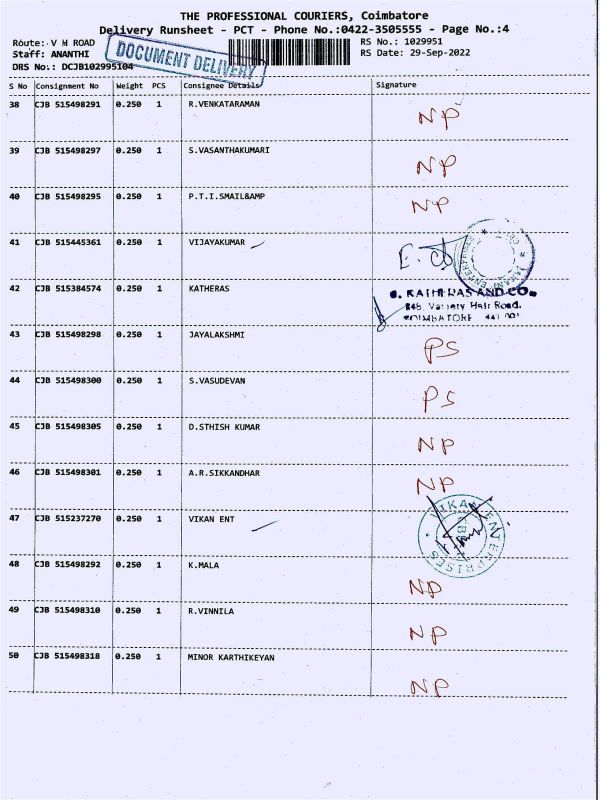 THE PROFESSIONAL COURIERS, Coimbatore
Delivery Runsheet - PCT - Phone No.:0422-3505555 - Page No.:4
Route: V H ROAD
Staff: ANANTHI
DRS No.: DCJB102995104
DOCUMENT DELIVERY
RS No.: 1029951
RS Date: 29-Sep-2022
S No Consignment No Weight PCS Consignee Details Signature
38 CJB 515498291 0.250 1 R.VENKATARAMAN NP
39 CJB 515498297 0.250 1 S.VASANTHAKUMARI NP
40 CJB 515498295 0.250 1 P.T.I.SMAIL&AMP NP
41 CJB 515445361 0.250 1 VIJAYAKUMAR
42 CJB 515384574 0.250 1 KATHERAS
KATHERAS AND CO.
Road,
COIMBATORE 641 001
43 CJB 515498298 0.250 1 JAYALAKSHMI PS
44 CJB 515498300 0.250 1 S.VASUDEVAN PS
45 CJB 515498305 0.250 1 D.STHISH KUMAR NP
46 CJB 515498301 0.250 1 A.R.SIKKANDHAR NP
47 CJB 515237270 0.250 1 VIKAN ENT
VIKAN ENTERPRISES
48 CJB 515498292 0.250 1 K.MALA NP
49 CJB 515498310 0.250 1 R.VINNILA NP
50 CJB 515498318 0.250 1 MINOR KARTHIKEYAN NP